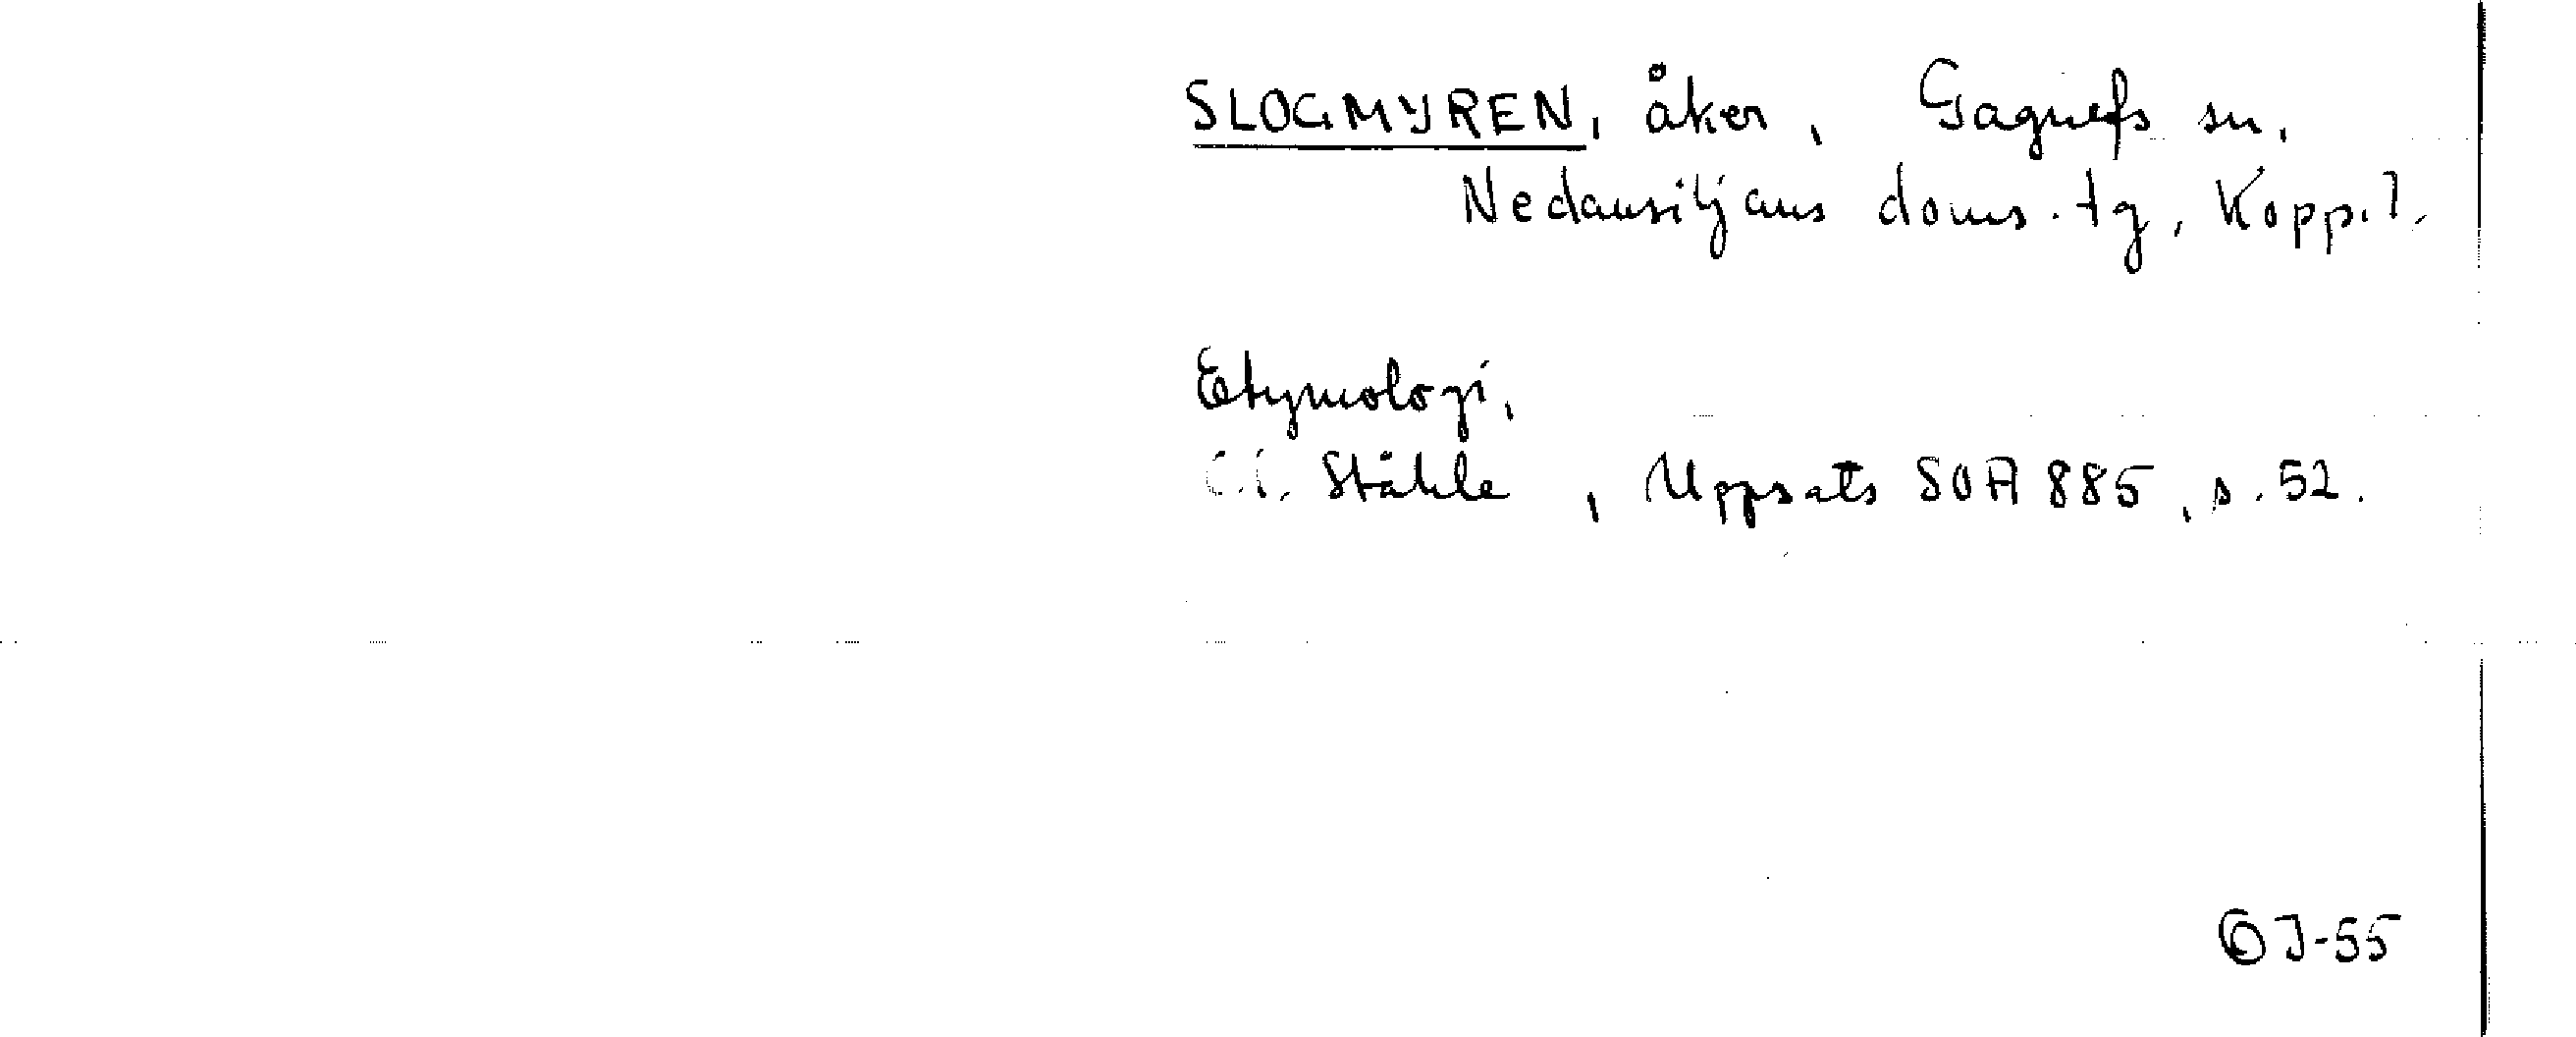 SLOGMYREN, åker, Gagnefs sn,
Nedansiljans doms. tg, Kopp. l.
Etymologi,
C.I. Ståhle, Uppsats SOA 885, s. 52.